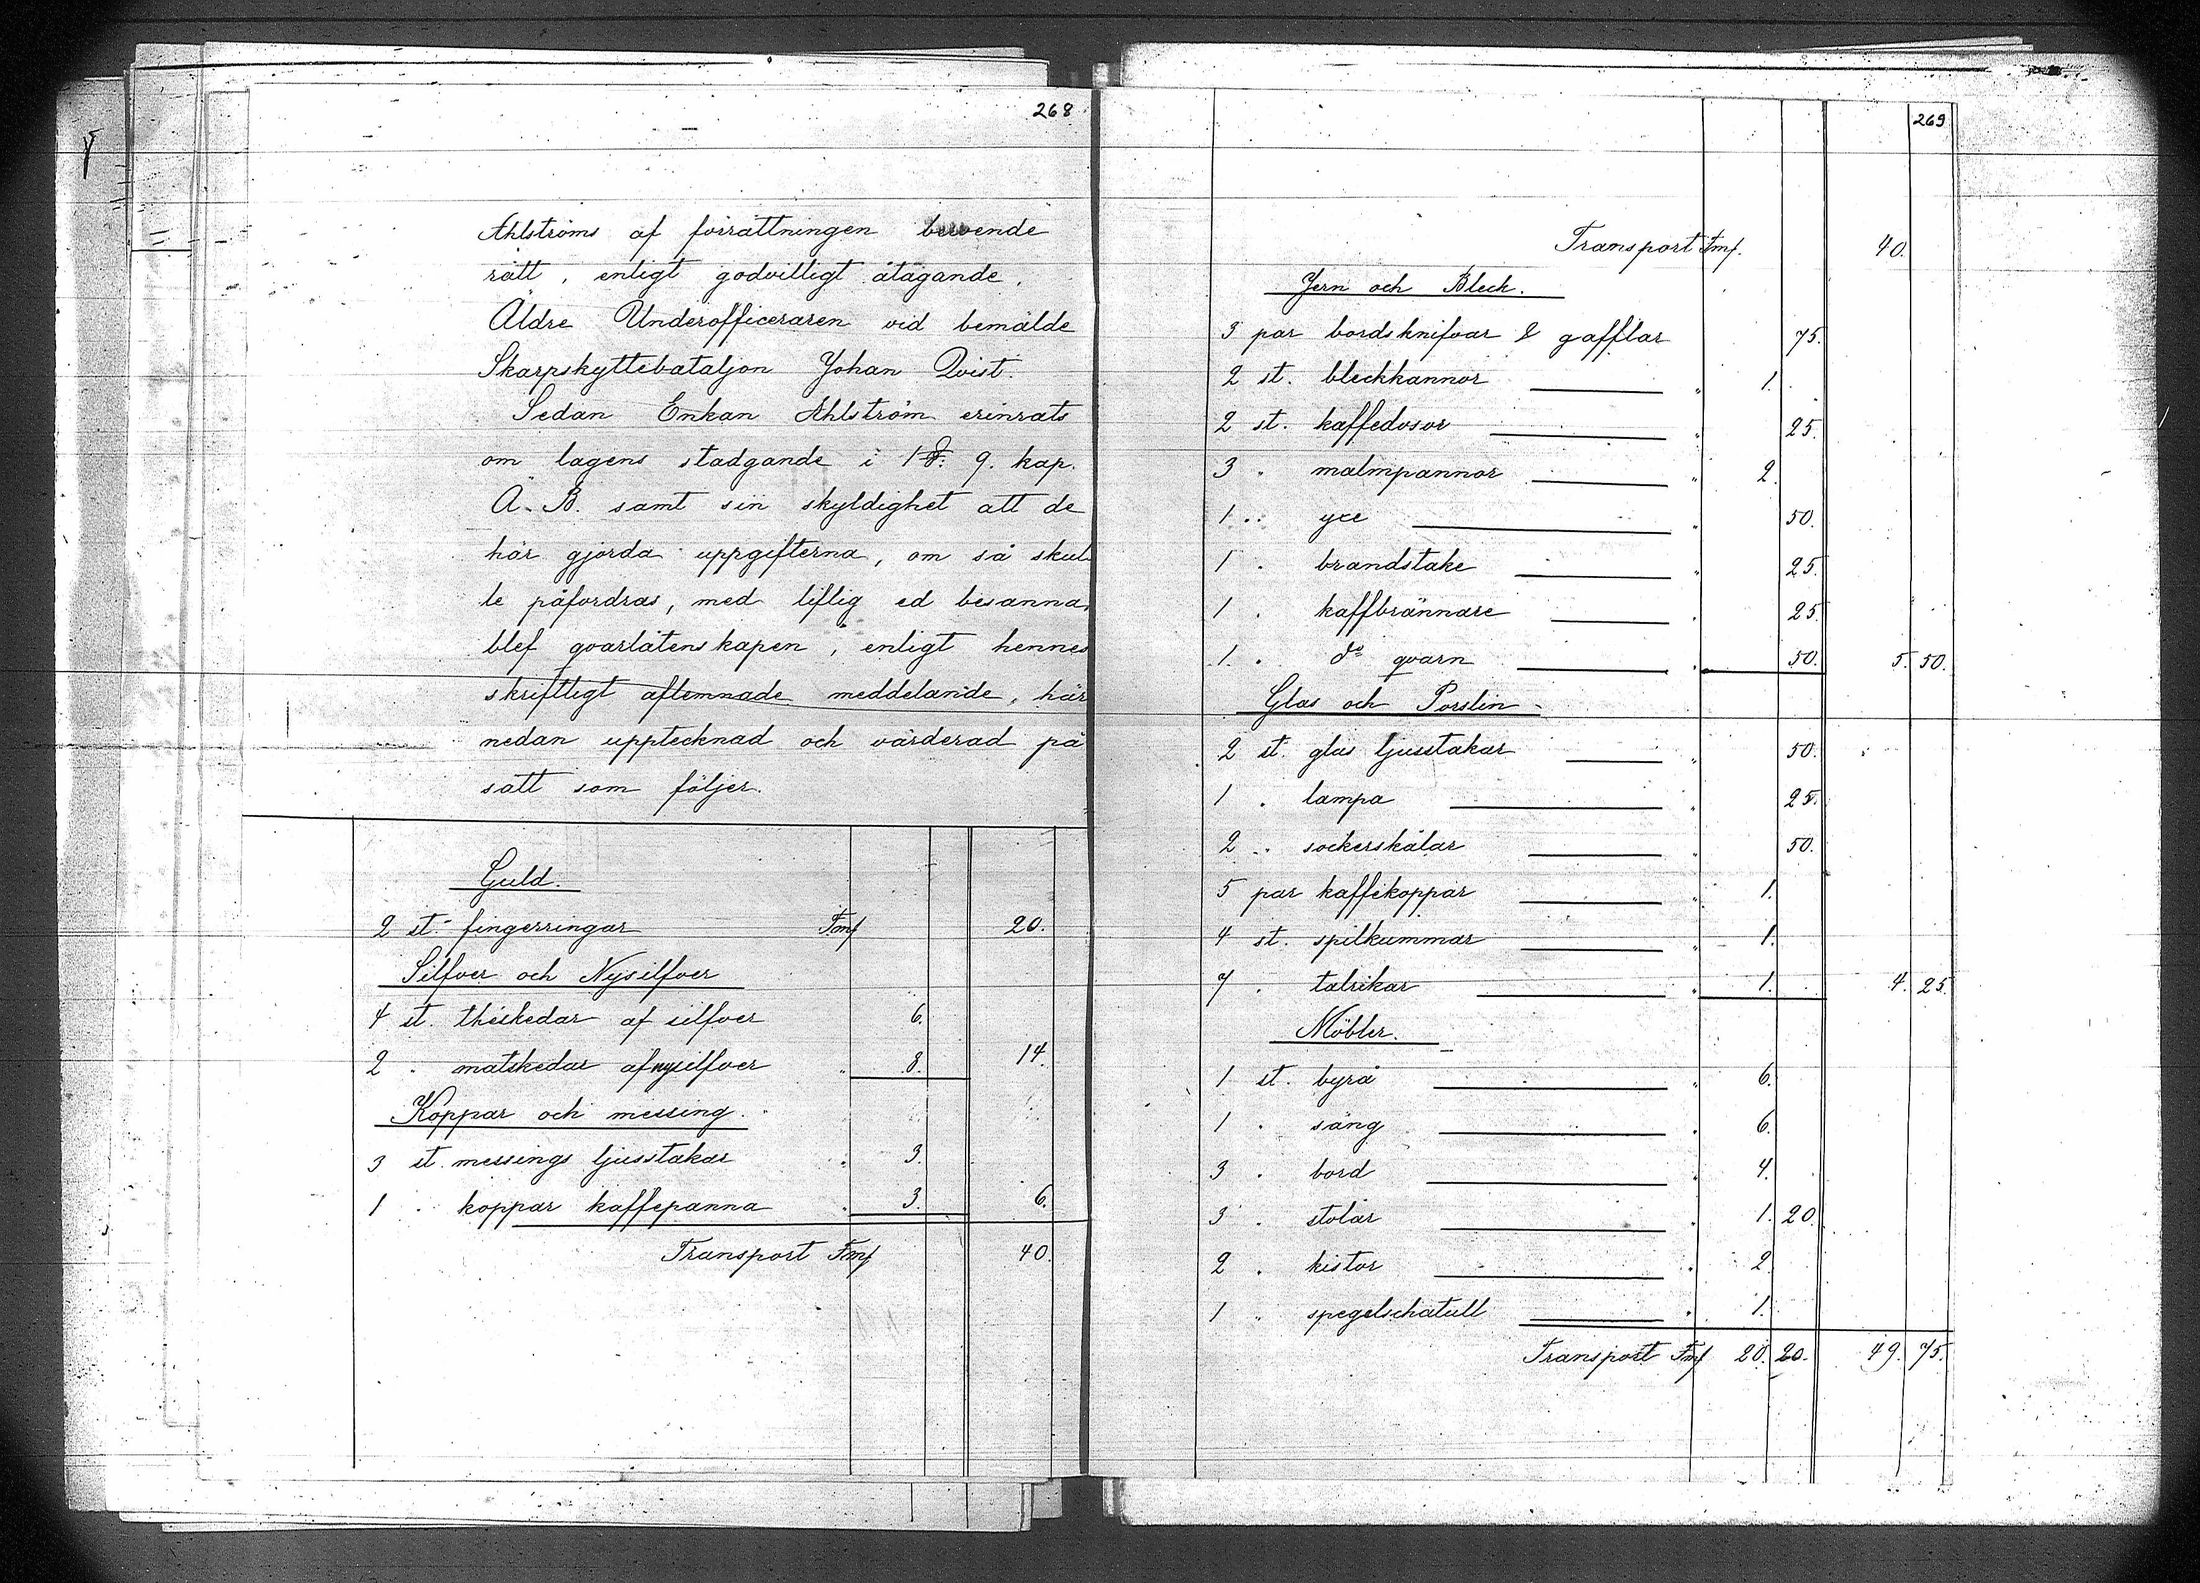 268
Ahlströms af förrättningen beroende
rätt, enligt godvilligt åtagande,
Äldre Underofficeraren vid bemälde
Skarpskyttebataljon Johan Qvist.
Sedan Enkan Ahlström erinrats
om lagens stadgande i 1 §. 9. kap.
Ä. B. samt sin skyldighet att de
här gjorda uppgifterna, om så skul
le påfordras, med liflig ed besanna,
blef qvarlåtenskapen, enligt hennes
skriftligt aflemnade meddelande, här
nedan upptecknad och värderad på
sätt som följer.
Guld.
2 st. fingerringar Fmf 20.
Silfver och Nysilfver
4 st. theskedar af silfver 6.
2 " matskedar af nysilfver " 8. 14.
Koppar och messing.
3 st. messings ljusstakar " 3.
1 " koppar kaffepanna " 3. 6.
Transport Fmf 40.
269
Transport Fmf. 40.
Jern och Bleck.
3 par bordsknifvar & gafflar 75.
2 st. bleckkannor " 1.
2 st. kaffedosor " 25.
3 " malmpannor " 2.
1 " yxe " 50.
1 " brandstake " 25.
1 " kaffbrännare " 25.
1 " do qvarn " 50. 5. 50.
Glas och Porslin
2 st. glas ljusstakar " 50.
1 " lampa " 25.
2 " sockerskålar " 50.
5 par kaffekoppar " 1.
4 st. spilkummar " 1.
7 " talrikar " 1. 4. 25.
Möbler.
1 st. byrå " 6.
1 " säng " 6.
3 " bord 4.
3 " stolar " 1. 20.
2 " kistor " 2.
1 " spegelschatull " 1.
Transport Fmf 20. 20. 49. 75.